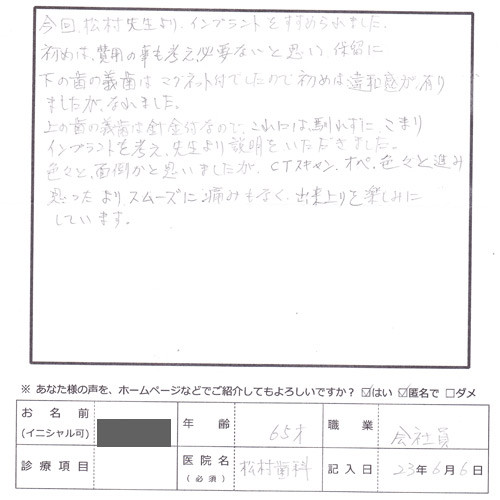 今回、松村先生より、インプラントをすすめられました。
初めは、費用の事も考え必要ないと思い 保留に
下の歯の義歯は マグネット付でしたので初めは違和感が有り
ましたが、なれました。
上の歯の義歯は針金付なので、これには、馴れずに、こまり
インプラントを考え、先生より説明をいただきました。
色々と、面倒かと思いましたが、CTスキャン、オペ、色々と進み
思ったより、スムーズに、痛みもなく、出来上りを楽しみに
しています。
※ あなた様の声を、ホームページなどでご紹介してもよろしいですか？ ☑はい ☑匿名で □ダメ
お名前 (イニシャル可) 年齢 65才 職業 会社員
診療項目 医院名 (必須) 松村歯科 記入日 23年6月6日